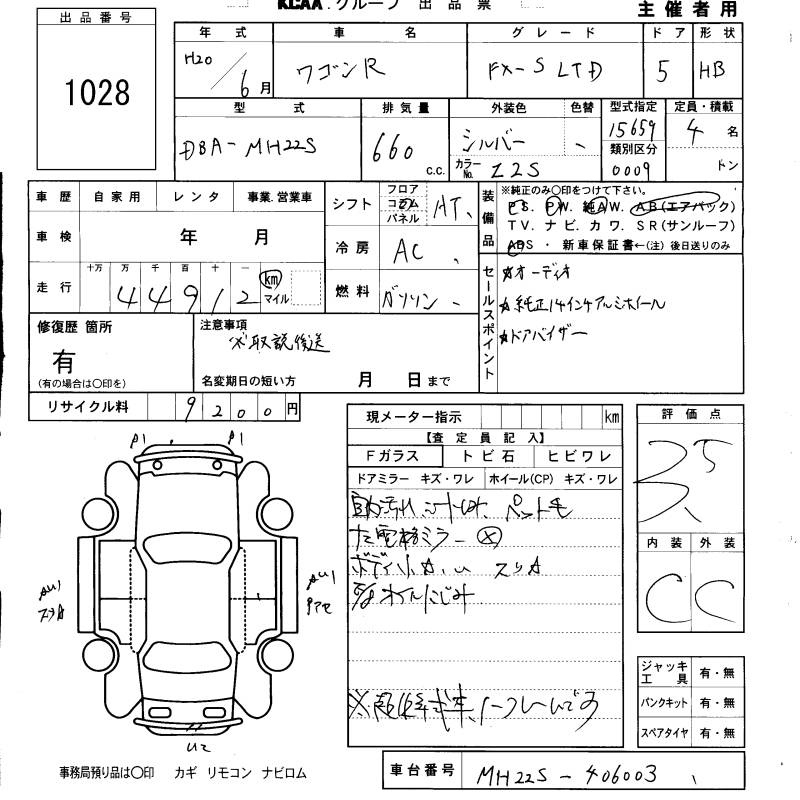 KCAA グループ 出品票
主催者用
出品番号
1028
年式 車名 グレード ドア 形状
H20/6月 ワゴンR FX-S LTD 5 HB
型式 排気量 外装色 色替 型式指定 定員・積載
DBA-MH22S 660 c.c. シルバー 15659 4名
カラーNo. Z2S 類別区分 0009 トン
車歴 自家用 レンタ 事業.営業車
車検 年 月
走行 十万 万 千 百 十 一
44912 km マイル
シフト フロア コラム パネル AT
冷房 AC
燃料 ガソリン
装備品 ※純正のみ〇印をつけて下さい。
P S. P W. 純A W. A B (エアバック)
T V. ナ ビ. カ ワ. S R (サンルーフ)
ABS ・ 新車保証書←(注) 後日送りのみ
セールスポイント
☆オーディオ
☆純正14インチアルミホイール
☆ドアバイザー
修復歴 箇所
有
(有の場合は〇印を)
注意事項
※取説後送
名変期日の短い方 月 日まで
リサイクル料 9200円
現メーター指示 km
【査定員記入】
Fガラス トビ石 ヒビワレ
ドアミラー キズ・ワレ ホイール(CP) キズ・ワレ
ペット毛
左電格ミラー ⓧ
ボディ小
スリキ
オイルにじみ
評価点
3.5
内装 外装
C C
ジャッキ工具 有・無
パンクキット 有・無
スペアタイヤ 有・無
A1 A1
AU1
AU1
U2
事務局預り品は〇印 カギ リモコン ナビロム
車台番号 MH22S-406003